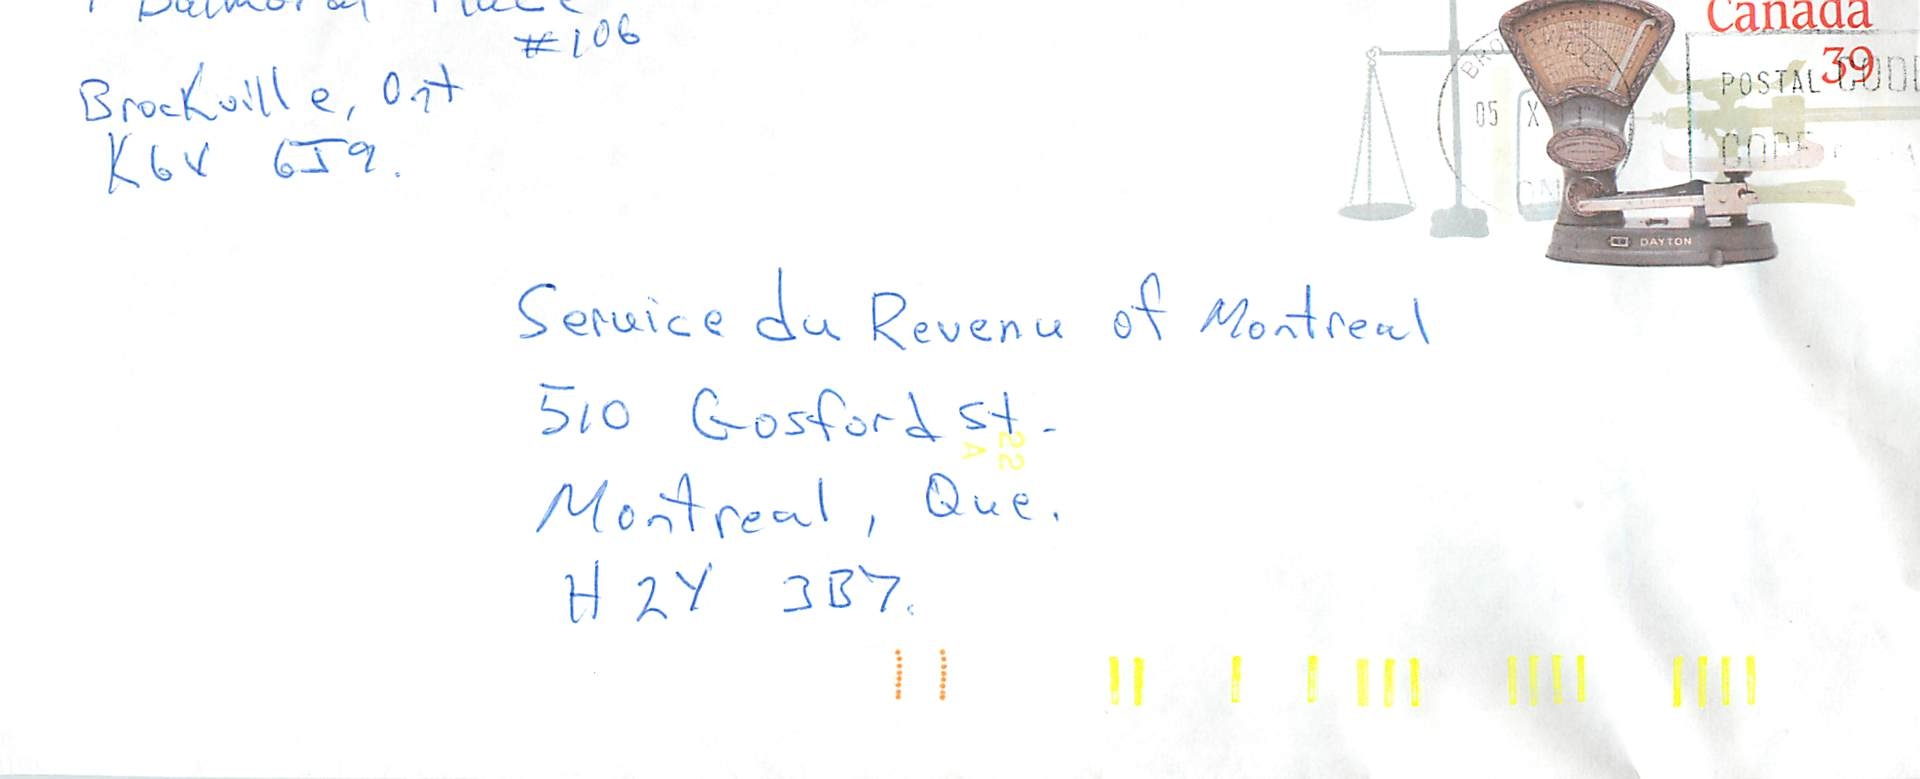 Balmoral Place
#106
Brockville, Ont
K6V 6J9.
Canada
39
POSTAL CODE
CODE
BRO
05 X
ON
DAYTON
Service du Revenu of Montreal
510 Gosford St.
22
A
Montreal, Que.
H2Y 3B7.